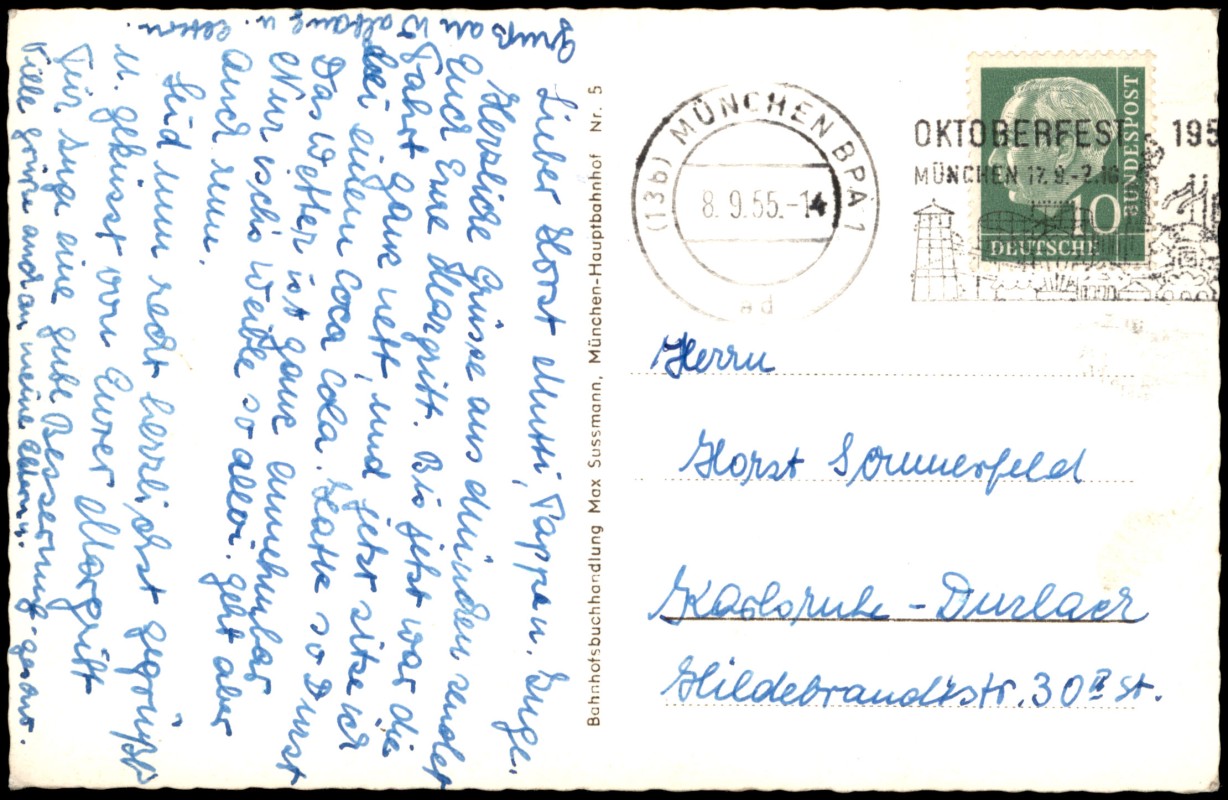 Lieber Horst Mutti, Pappa u. Inge.
Herzliche Grüsse aus München sendet
Euch Eure Margritt. Bis jetzt war die
Fahrt ganz nett, und jetzt sitze ich
bei einem Coca Cola. Hatte so Durst
Das Wetter ist ganz annehmbar
Nur ischs weible so allei. geht aber
Auch rum.
Seid nun recht herzlichst gegrüßt
u. geküsst von Eurer Margritt
Für Inga eine gute Besserung
Viele Grüsse auch an meine Eltern.
Gruß an W u. Eltern.
Bahnhofsbuchhandlung Max Sussmann, München-Hauptbahnhof Nr. 5
(13b) MÜNCHEN BPA 1
8.9.55.-14
ad
OKTOBERFEST 195
MÜNCHEN 17.9.-2.10
10
DEUTSCHE
BUNDESPOST
Herrn
Horst Sommerfeld
Karlsruhe-Durlach
Hildebrandtstr. 30 II St.